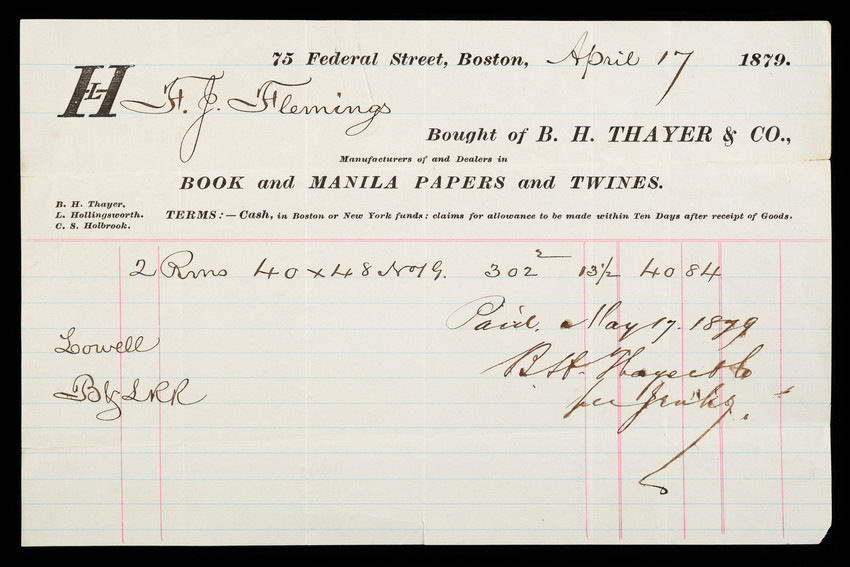 75 Federal Street, Boston, April 17 1879.
HLH F. J. Flemings
Bought of B. H. THAYER & CO.,
Manufacturers of and Dealers in
BOOK and MANILA PAPERS and TWINES.
B. H. Thayer.
L. Hollingsworth.
C. S. Holbrook.
TERMS:—Cash, in Boston or New York funds: claims for allowance to be made within Ten Days after receipt of Goods.
2 Rms 40 x 48 No 19. 302 13 1/2 40 84
Paid. May 17. 1879
Lowell
B. H. Thayer & Co
B & L RR
per